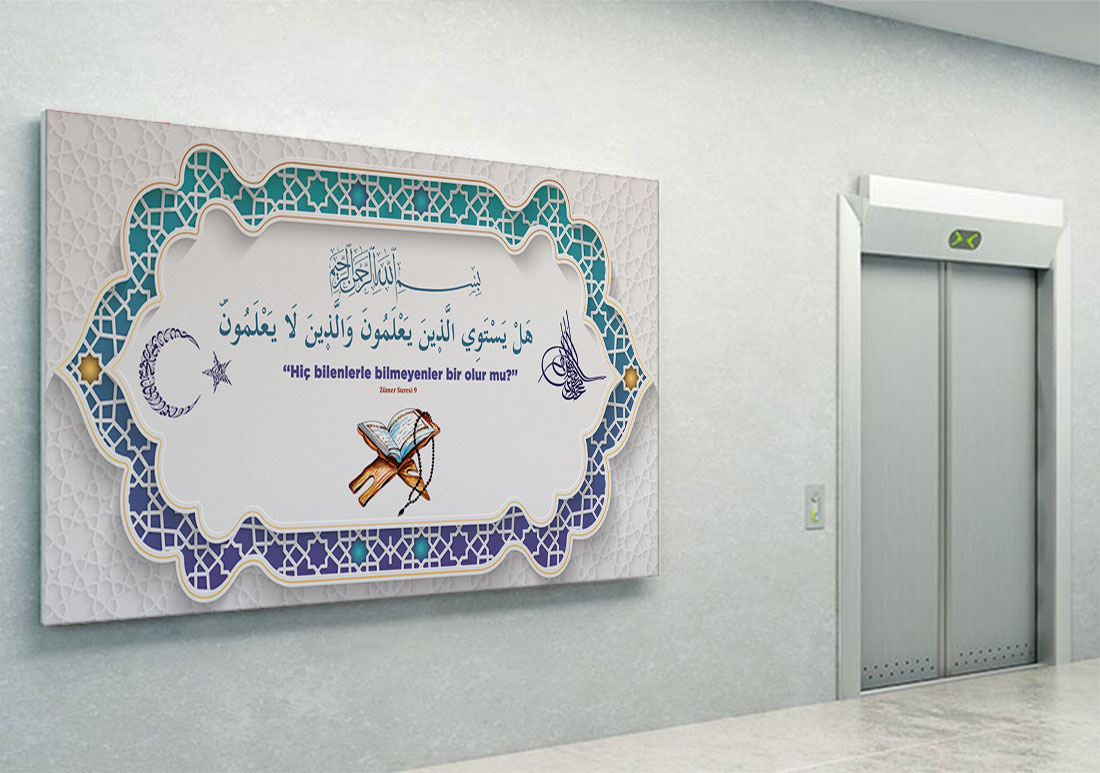 بِسْمِ اللَّهِ الرَّحْمَٰنِ الرَّحِيمِ
هَلْ يَسْتَوِي الَّذِينَ يَعْلَمُونَ وَالَّذِينَ لَا يَعْلَمُونَ
“Hiç bilenlerle bilmeyenler bir olur mu?”
Zümer Suresi 9